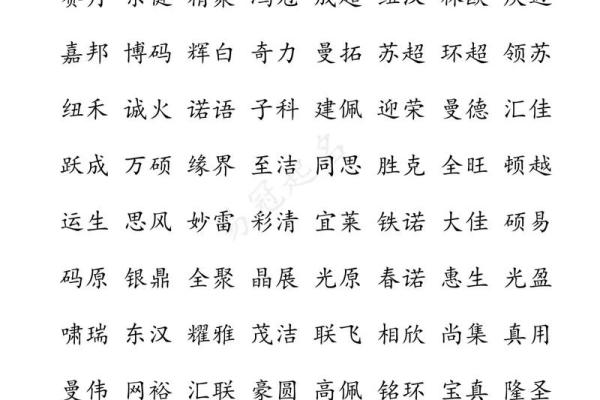 嘉邦 博码 辉白 奇力 曼拓 苏超 环超 领苏
纽禾 诚火 诺语 子科 建佩 迎荣 曼德 汇佳
跃成 万硕 缘界 至洁 同思 胜克 全旺 顿越
运生 思风 妙雷 彩清 宜莱 铁诺 大佳 硕易
码原 银鼎 全聚 晶展 光原 春诺 惠生 光盈
啸瑞 东汉 耀雅 茂洁 联飞 相欣 尚集 真用
曼伟 网裕 汇联 豪圆 高佩 铭环 宝真 隆圣
易冠起名